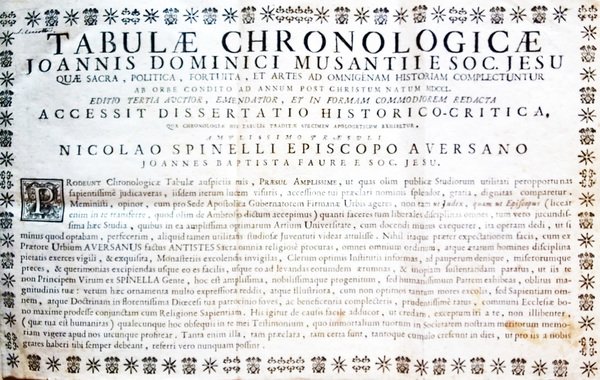 TABULÆ CHRONOLOGICÆ
JOANNIS DOMINICI MUSANTII E SOC. JESU
QUÆ SACRA, POLITICA, FORTUITA, ET ARTES AD OMNIGENAM HISTORIAM COMPLECTUNTUR
AB ORBE CONDITO AD ANNUM POST CHRISTUM NATUM MDCCL.
EDITIO TERTIA AUCTIOR, EMENDATIOR, ET IN FORMAM COMMODIOREM REDACTA
ACCESSIT DISSERTATIO HISTORICO-CRITICA,
QUA CHRONOLOGIÆ HIS TABULIS TRADITÆ SPECIMEN APOLOGETICUM EXHIBETUR,
AMPLISSIMO PRÆSULI
NICOLAO SPINELLI EPISCOPO AVERSANO
JOANNES BAPTISTA FAURE E SOC. JESU.
PRODEUNT Chronologicæ Tabulæ auspiciis tuis, PRÆSUL AMPLISSIME, ut quas olim publicæ Studiorum utilitati peropportunas
sapientissimè judicaveras, iisdem iterum lucem visuris, accessione tui præclari nominis splendor, gratia, dignitas compararetur.
Meministi, opinor, cum pro Sede Apostolica Gubernatorem Firmanæ Urbis ageres, non tam ut Judex, quam ut Episcopus (liceat
enim in te transferre, quod olim de Ambrosio dictum accepimus) quanti faceres tum liberales disciplinas omnes, tum vero jucundis-
sima hæc Studia, quibus in ea amplissima optimarum Artium Universitate, cum docendi munus exequerer, ita operam dedi, ut si
minus quod optabam, perficerem, aliquid tamen utilitatis studiosæ Juventuti videar attulisse. Nihil itaque præter expectationem facis, cum ex
Prætore Urbium AVERSANUS factus ANTISTES Sacra omnia religiosè procuras, omnes omnium ordines, atque ætatum homines disciplina
pietatis exerces vigili, & exquisita, Monasteriis excolendis invigilas, Clerum optimis Instituis informas, ad pauperum denique, miserorumque
preces, & querimonias excipiendas usque eo es facilis, usque eo ad levandas eorumdem ærumnas, & inopiam sustentandam paratus, ut iis te
non Principem Virum ex SPINELLA Gente, hoc est amplissima, nobilissimaque progenitum, sed humanissimum Parentem exhibeas, oblitus ma-
gnitudinis tuæ: verum hæc ornamenta multo expressiora reddis, atque illustriora, cum non optimos tantum mores excolis, sed Sapientiam om-
nem, atque Doctrinam in florentissima Diœcesi tua patrocinio foves, ac beneficentia complecteris, prudentissimè ratus, communi Ecclesiæ bo-
no maxime prodesse conjunctam cum Religione Sapientiam. His igitur de causis facile adducor, ut credam, exceptum iri a te, non illibenter,
(quæ tua est humanitas) qualecunque hoc obsequii in te mei Testimonium, quo immortalium tuorum in Societatem nostram meritorum memo-
riam vigere apud nos utcunque probetur. Tanta enim illa, tam præclara, tam certa sunt, tantoque cumulo crescunt in dies, ut pro iis a nobis
grates haberi tibi semper debeant, referri vero nunquam possint.